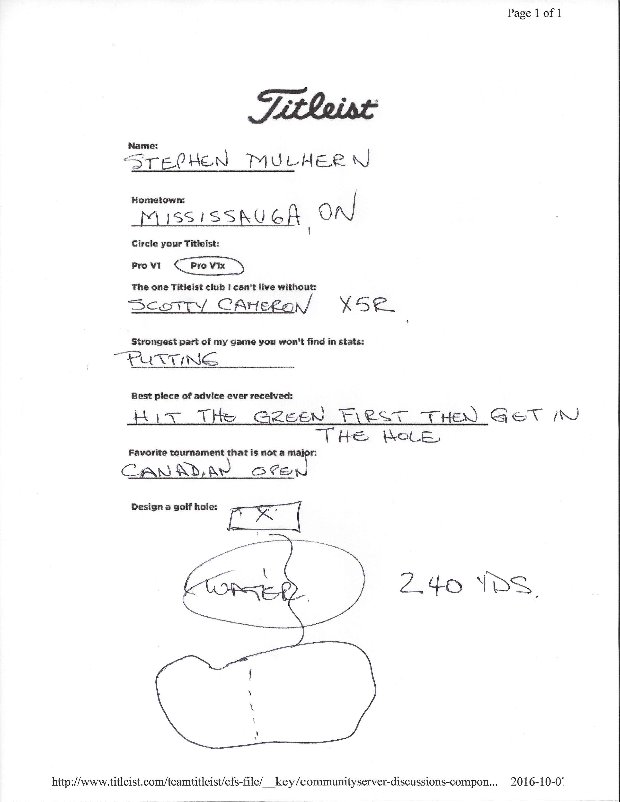 Page 1 of 1
Titleist
Name:
STEPHEN MULHERN
Hometown:
MISSISSAUGA, ON
Circle your Titleist:
Pro V1 Pro V1x
The one Titleist club I can't live without:
SCOTTY CAMERON X5R
Strongest part of my game you won't find in stats:
PUTTING
Best piece of advice ever received:
HIT THE GREEN FIRST THEN GET IN
THE HOLE
Favorite tournament that is not a major:
CANADIAN OPEN
Design a golf hole:
X
WATER
240 YDS.
http://www.titleist.com/teamtitleist/cfs-file/__key/communityserver-discussions-compon... 2016-10-0